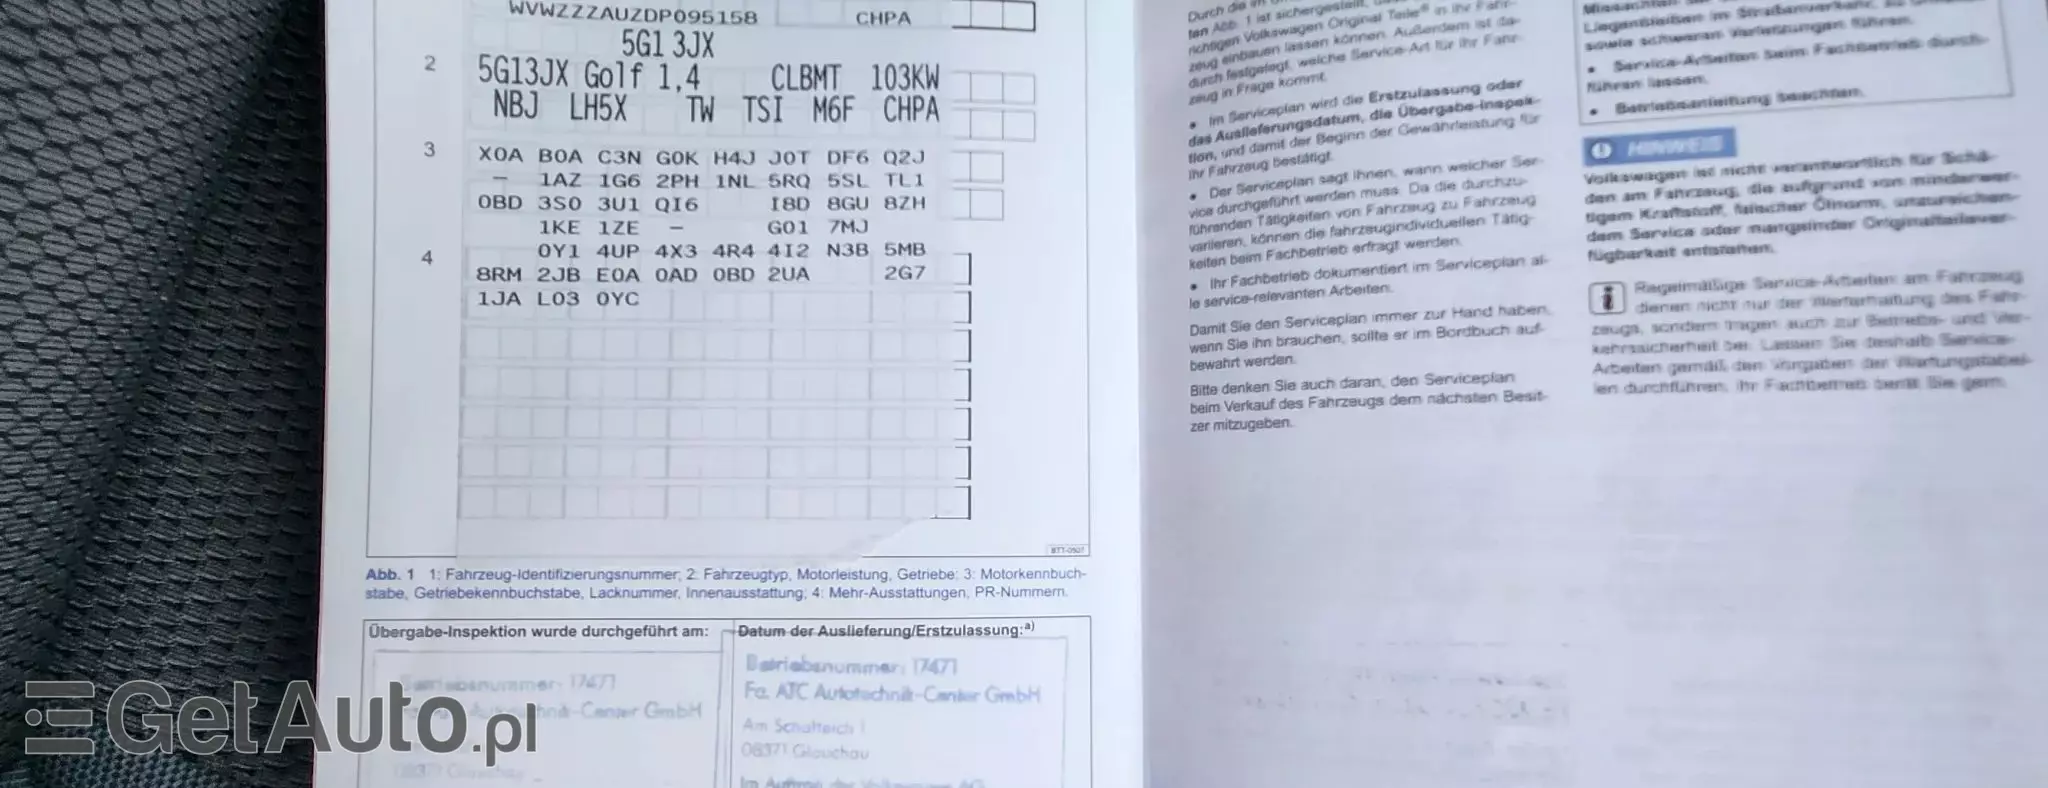 WVWZZZAUZDP095158 CHPA
5G1 3JX
2 5G13JX Golf 1,4 CLBMT 103KW
NBJ LH5X TW TSI M6F CHPA
3 X0A B0A C3N G0K H4J J0T DF6 Q2J
- 1AZ 1G6 2PH 1NL 5RQ 5SL TL1
0BD 3S0 3U1 QI6 I8D 8GU 8ZH
1KE 1ZE - G01 7MJ
4 0Y1 4UP 4X3 4R4 4I2 N3B 5MB
8RM 2JB E0A 0AD 0BD 2UA 2G7
1JA L03 0YC
BTT-0507
Abb. 1 1: Fahrzeug-Identifizierungsnummer; 2: Fahrzeugtyp, Motorleistung, Getriebe; 3: Motorkennbuch-
stabe, Getriebekennbuchstabe, Lacknummer, Innenausstattung; 4: Mehr-Ausstattungen, PR-Nummern.
Übergabe-Inspektion wurde durchgeführt am:
Betriebsnummer: 17471
08371 Glauchau
Datum der Auslieferung/Erstzulassung:a)
Betriebsnummer: 17471
Fa. ATC Autotechnik-Center GmbH
Am Schafteich 1
08371 Glauchau
Im Auftrag der Volkswagen AG
Durch die im
ten Abb. 1 ist sichergestellt,
richtigen Volkswagen Original Teile® in Ihr Fahr-
zeug einbauen lassen können. Außerdem ist da-
durch festgelegt, welche Service-Art für Ihr Fahr-
zeug in Frage kommt.
• Im Serviceplan wird die Erstzulassung oder
das Auslieferungsdatum, die Übergabe-Inspek-
tion, und damit der Beginn der Gewährleistung für
Ihr Fahrzeug bestätigt.
• Der Serviceplan sagt Ihnen, wann welcher Ser-
vice durchgeführt werden muss. Da die durchzu-
führenden Tätigkeiten von Fahrzeug zu Fahrzeug
variieren, können die fahrzeugindividuellen Tätig-
keiten beim Fachbetrieb erfragt werden.
• Ihr Fachbetrieb dokumentiert im Serviceplan al-
le service-relevanten Arbeiten.
Damit Sie den Serviceplan immer zur Hand haben,
wenn Sie ihn brauchen, sollte er im Bordbuch auf-
bewahrt werden.
Bitte denken Sie auch daran, den Serviceplan
beim Verkauf des Fahrzeugs dem nächsten Besit-
zer mitzugeben.
Liegenbleiben im Straßenverkehr, zu
sowie schweren Verletzungen führen.
• Service-Arbeiten beim Fachbetrieb durch-
führen lassen.
• Betriebsanleitung beachten.
HINWEIS
Volkswagen ist nicht verantwortlich für Schä-
den am Fahrzeug, die aufgrund von minderwer-
tigem Kraftstoff, falscher Ölnorm, unzureichen-
dem Service oder mangelnder Originalteilever-
fügbarkeit entstehen.
i Regelmäßige Service-Arbeiten am Fahrzeug
dienen nicht nur der Werterhaltung des Fahr-
zeugs, sondern tragen auch zur Betriebs- und Ver-
kehrssicherheit bei. Lassen Sie deshalb Service-
Arbeiten gemäß den Vorgaben der Wartungstabel-
len durchführen. Ihr Fachbetrieb berät Sie gern.
GetAuto.pl